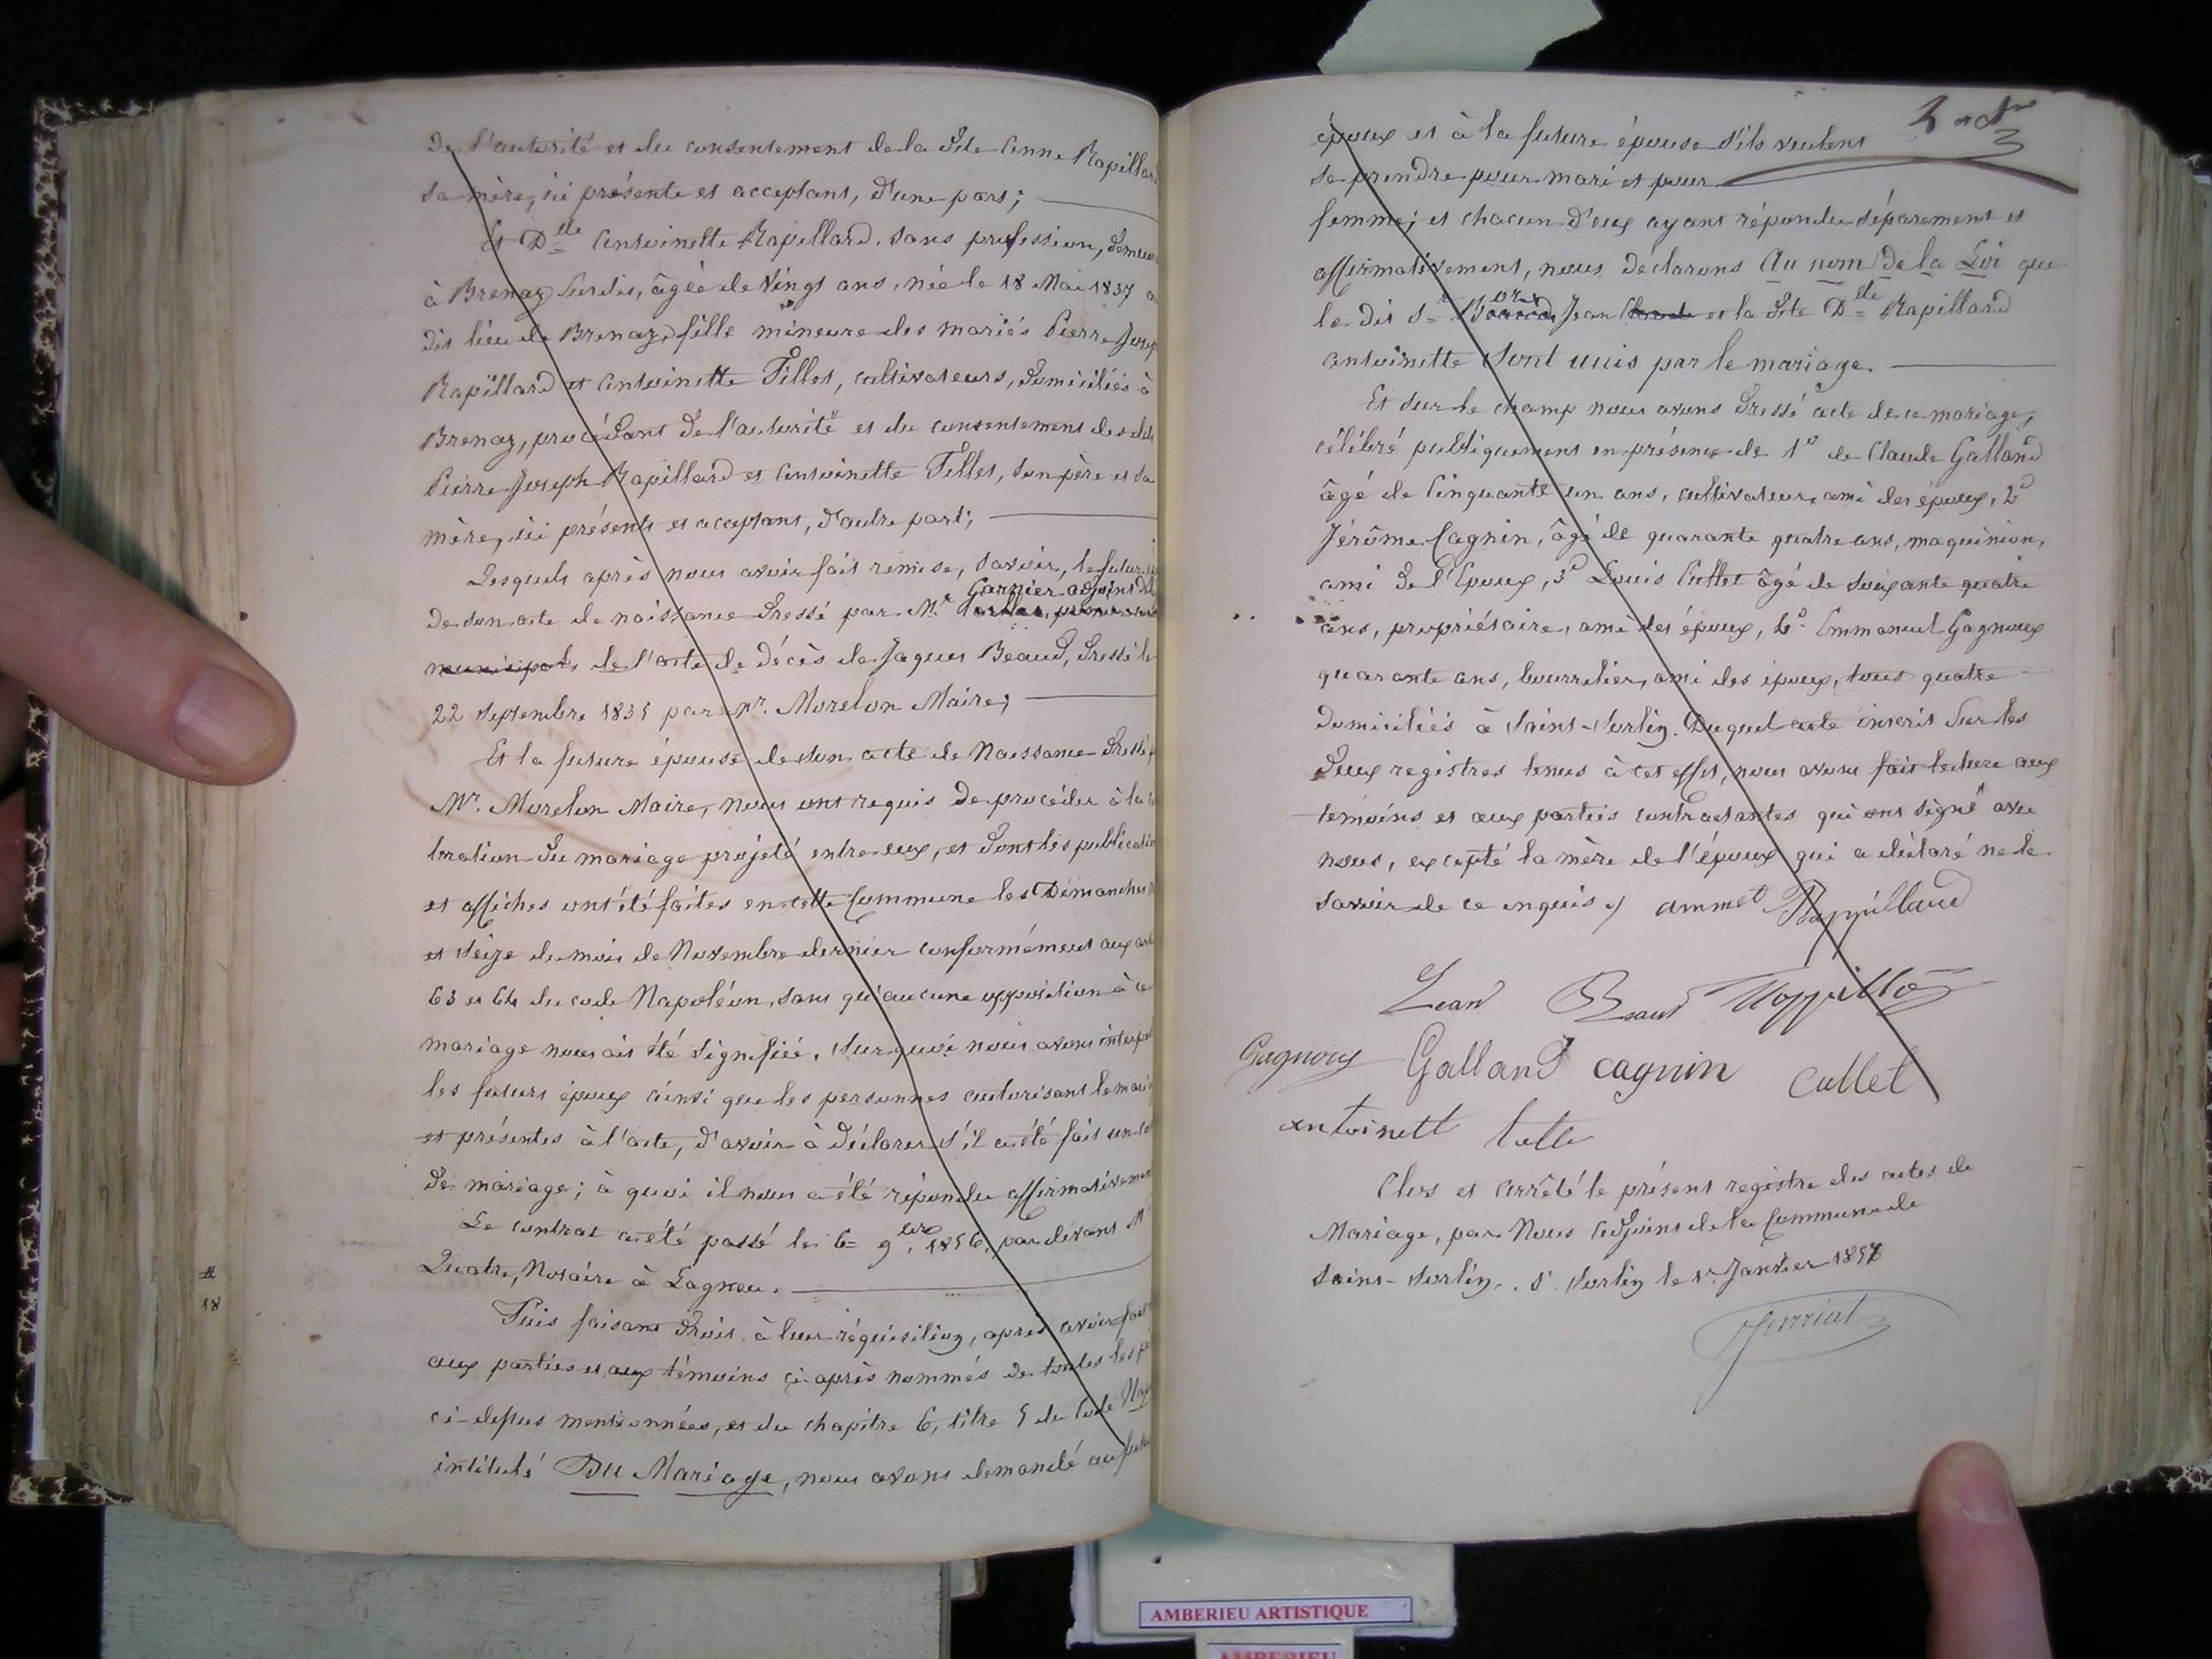 De l'autorité et du consentement de la dite Anne Rapillard
sa mère, ici présente et acceptant, d'une part;
Et Dlle Antoinette Rapillard, sans profession, demeu
à Brenaz surdit, âgée de Vingt ans, née le 18 Mai 1837 a
dit lieu de Brenaz, fille mineure des mariés Pierre Josep
Rapillard et Antoinette Tillet, cultivateurs, domiciliés à
Brenaz, procédant de l'autorité et du consentement desdits
Pierre Joseph Rapillard et Antoinette Tillet, son père et sa
mère, ici présents et acceptant, d'autre part;
Lesquels après nous avoir fait remise, savoir, le futur
Garnier adjoint
de son acte de naissance dressé par Mr
municipal, de l'acte de décès de Jaques Beaud, dressé le
22 Septembre 1835 par Mr. Morelon Maire;
Et la future épouse de son acte de Naissance dressé p
Mr. Morelon Maire, nous ont requis de procéder à la
bration du mariage projeté entre eux, et dont les publicatio
et affiches ont été faites en cette Commune les Dimanches
et seize du mois de Novembre dernier conformément aux art
63 et 64 du code Napoléon, sans qu'aucune opposition à ce
mariage nous ait été signifiée, sur quoi nous avons interpe
les futurs époux ainsi que les personnes autorisant le mari
et présentes à l'acte, d'avoir à déclarer s'il a été fait un co
de mariage; à quoi il nous a été répondu affirmativement
Le contrat a été passé le 6 9bre 1856, par devant M
Quatre, Notaire à Lagneu.
#
18
Puis faisant droit à leur réquisition, après avoir fait
aux parties et aux témoins ci-après nommés de toutes les pi
ci-dessus mentionnées, et du chapitre 6, titre 5 du Code Nap
intitulé Du Mariage, nous avons demandé au futur
époux et à la future épouse s'ils veulent
se prendre pour mari et pour
femme; et chacun d'eux ayant répondu séparement et
affirmativement, nous déclarons Au nom de la Loi que
le dit Sr Jean Claude et la dite Dlle Rapillard
antoinette sont unis par le mariage.
Et sur le champ nous avons dressé acte de ce mariage,
célébré publiquement en présence de 1º de Claude Galland
âgé de Cinquante un ans, cultivateur, ami des époux, 2º
Jérôme Cagnin, âgé de quarante quatre ans, maquinion,
ami de l'Epoux, 3º Louis Cullet âgé de soixante quatre
ans, propriétaire, ami des époux, 4º Emmanuel Gagnoux
quarante ans, bourrelier, ami des époux, tous quatre
domiciliés à Saint-Sorlin. Duquel acte inscrit sur les
deux registres tenus à cet effet, nous avons fait lecture aux
témoins et aux parties contractantes qui ont signé avec
nous, excepté la mère de l'époux qui a déclaré ne le
savoir de ce enquis. ammet Rappillard
Jean Beaud
Gagnoux Galland cagnin Cullet
antoinett telle
Clos et arrêté le présent registre des actes de
Mariage, par Nous Adjoint de la Commune de
Saint-Sorlin. St Sorlin le 1r Janvier 1857
AMBERIEU ARTISTIQUE
AMBERIEU